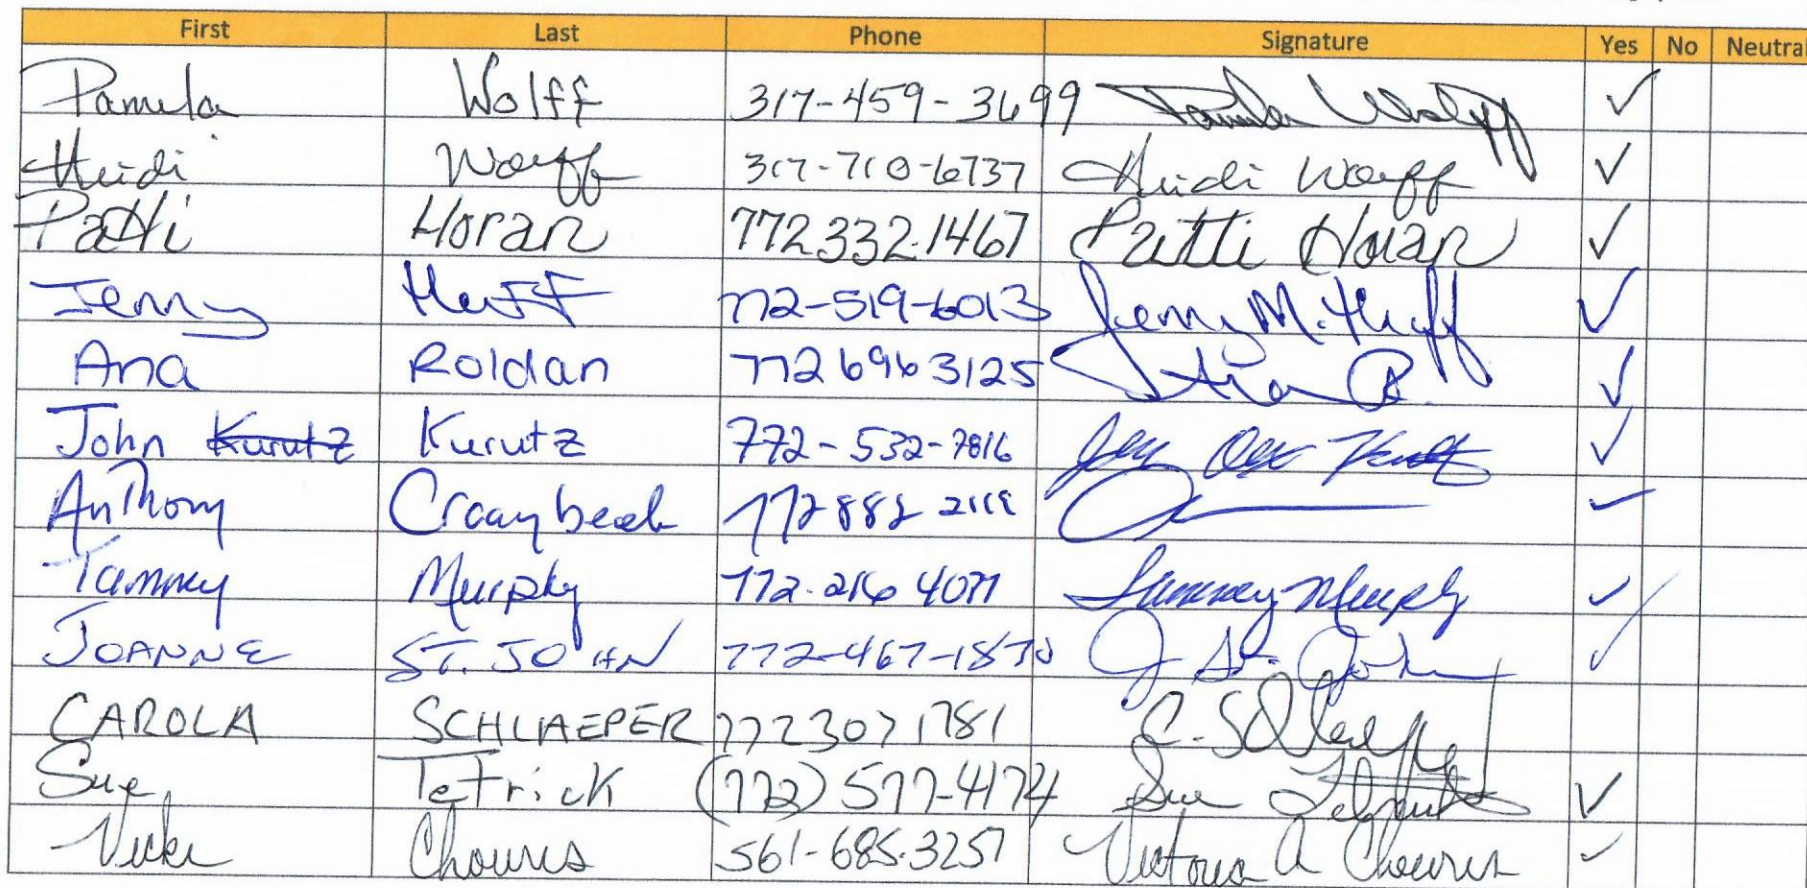 First Last Phone Signature Yes No Neutral
Pamela Wolff 317-459-3699 Pamela Wolff ✓
Heidi Worff 317-710-6737 Heidi Worff ✓
Patti Horan 772 332.1467 Patti Horan ✓
Jenny Huff 772-519-6013 Jenny M. Huff ✓
Ana Roldan 772 696 3125 Ana R. ✓
John Kurutz Kurutz 772-532-7816 ✓
Anthony 772 882 ✓
Tammy Murphy 772-216 4077 Tammy Murphy ✓
JOANNE ST. JOHN 772-467-1870 J St. John ✓
CAROLA SCHLAEPER 772 307 1781
Sue Tetrick (772) 577-4174 Sue Tetrick ✓
Vicki Chouris 561-685-3257 Victoria A Chouris ✓